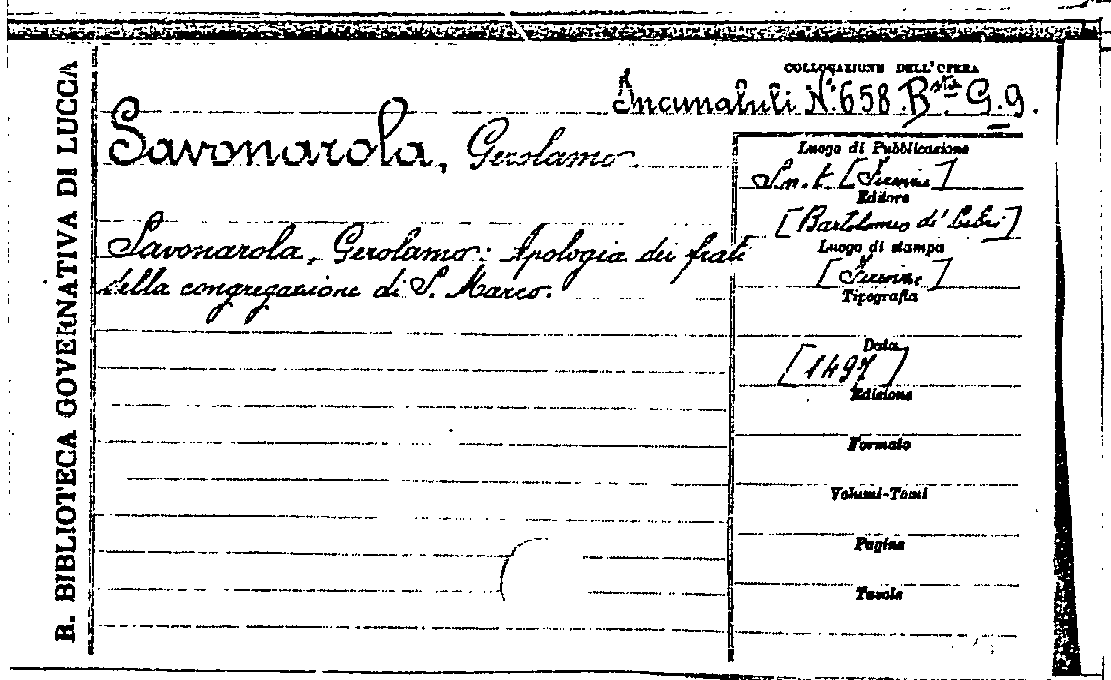 R. BIBLIOTECA GOVERNATIVA DI LUCCA
COLLOCAZIONE DELL'OPERA
Incunaluli N.º 658. Bsta G. 9.
Savonarola, Gerolamo
Savonarola, Gerolamo: Apologia dei frati
della congregazione di S. Marco.
Luogo di Pubblicazione
S. n. t. [Firenze]
Editore
[Bartolomeo di' Libri]
Luogo di stampa
[Firenze]
Tipografia
Data
[1497]
Edizione
Formato
Volumi-Tomi
Pagine
Tavole